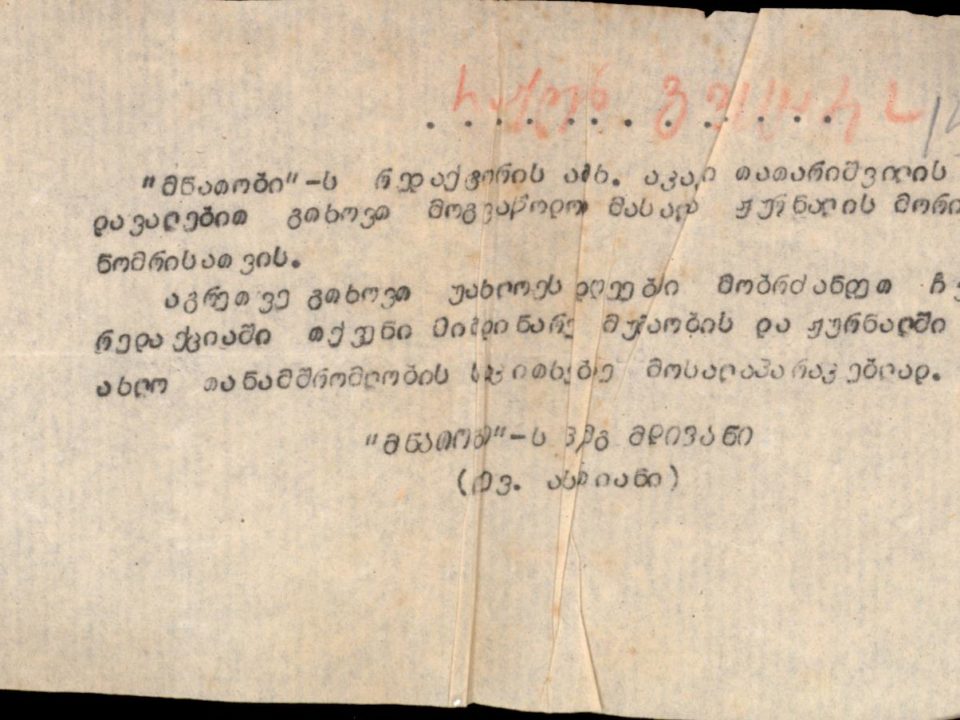 "მნათობი"-ს რედაქტორის ამხ. აკაკი თათარიშვილის
დავალებით გთხოვთ მოგვაწოდოთ მასალა ჟურნალის მორი
ნომრისათვის.
აგრეთვე გთხოვთ უახლოეს დღეებში მობრძანდეთ ჩვ
რედაქციაში თქვენი მიმდინარე მუშაობის და ჟურნალში
ახლო თანამშრომლობის საკითხებზე მოსალაპარაკებლად.
"მნათობი"-ს პ/მგ მდივანი
ასათიანი)